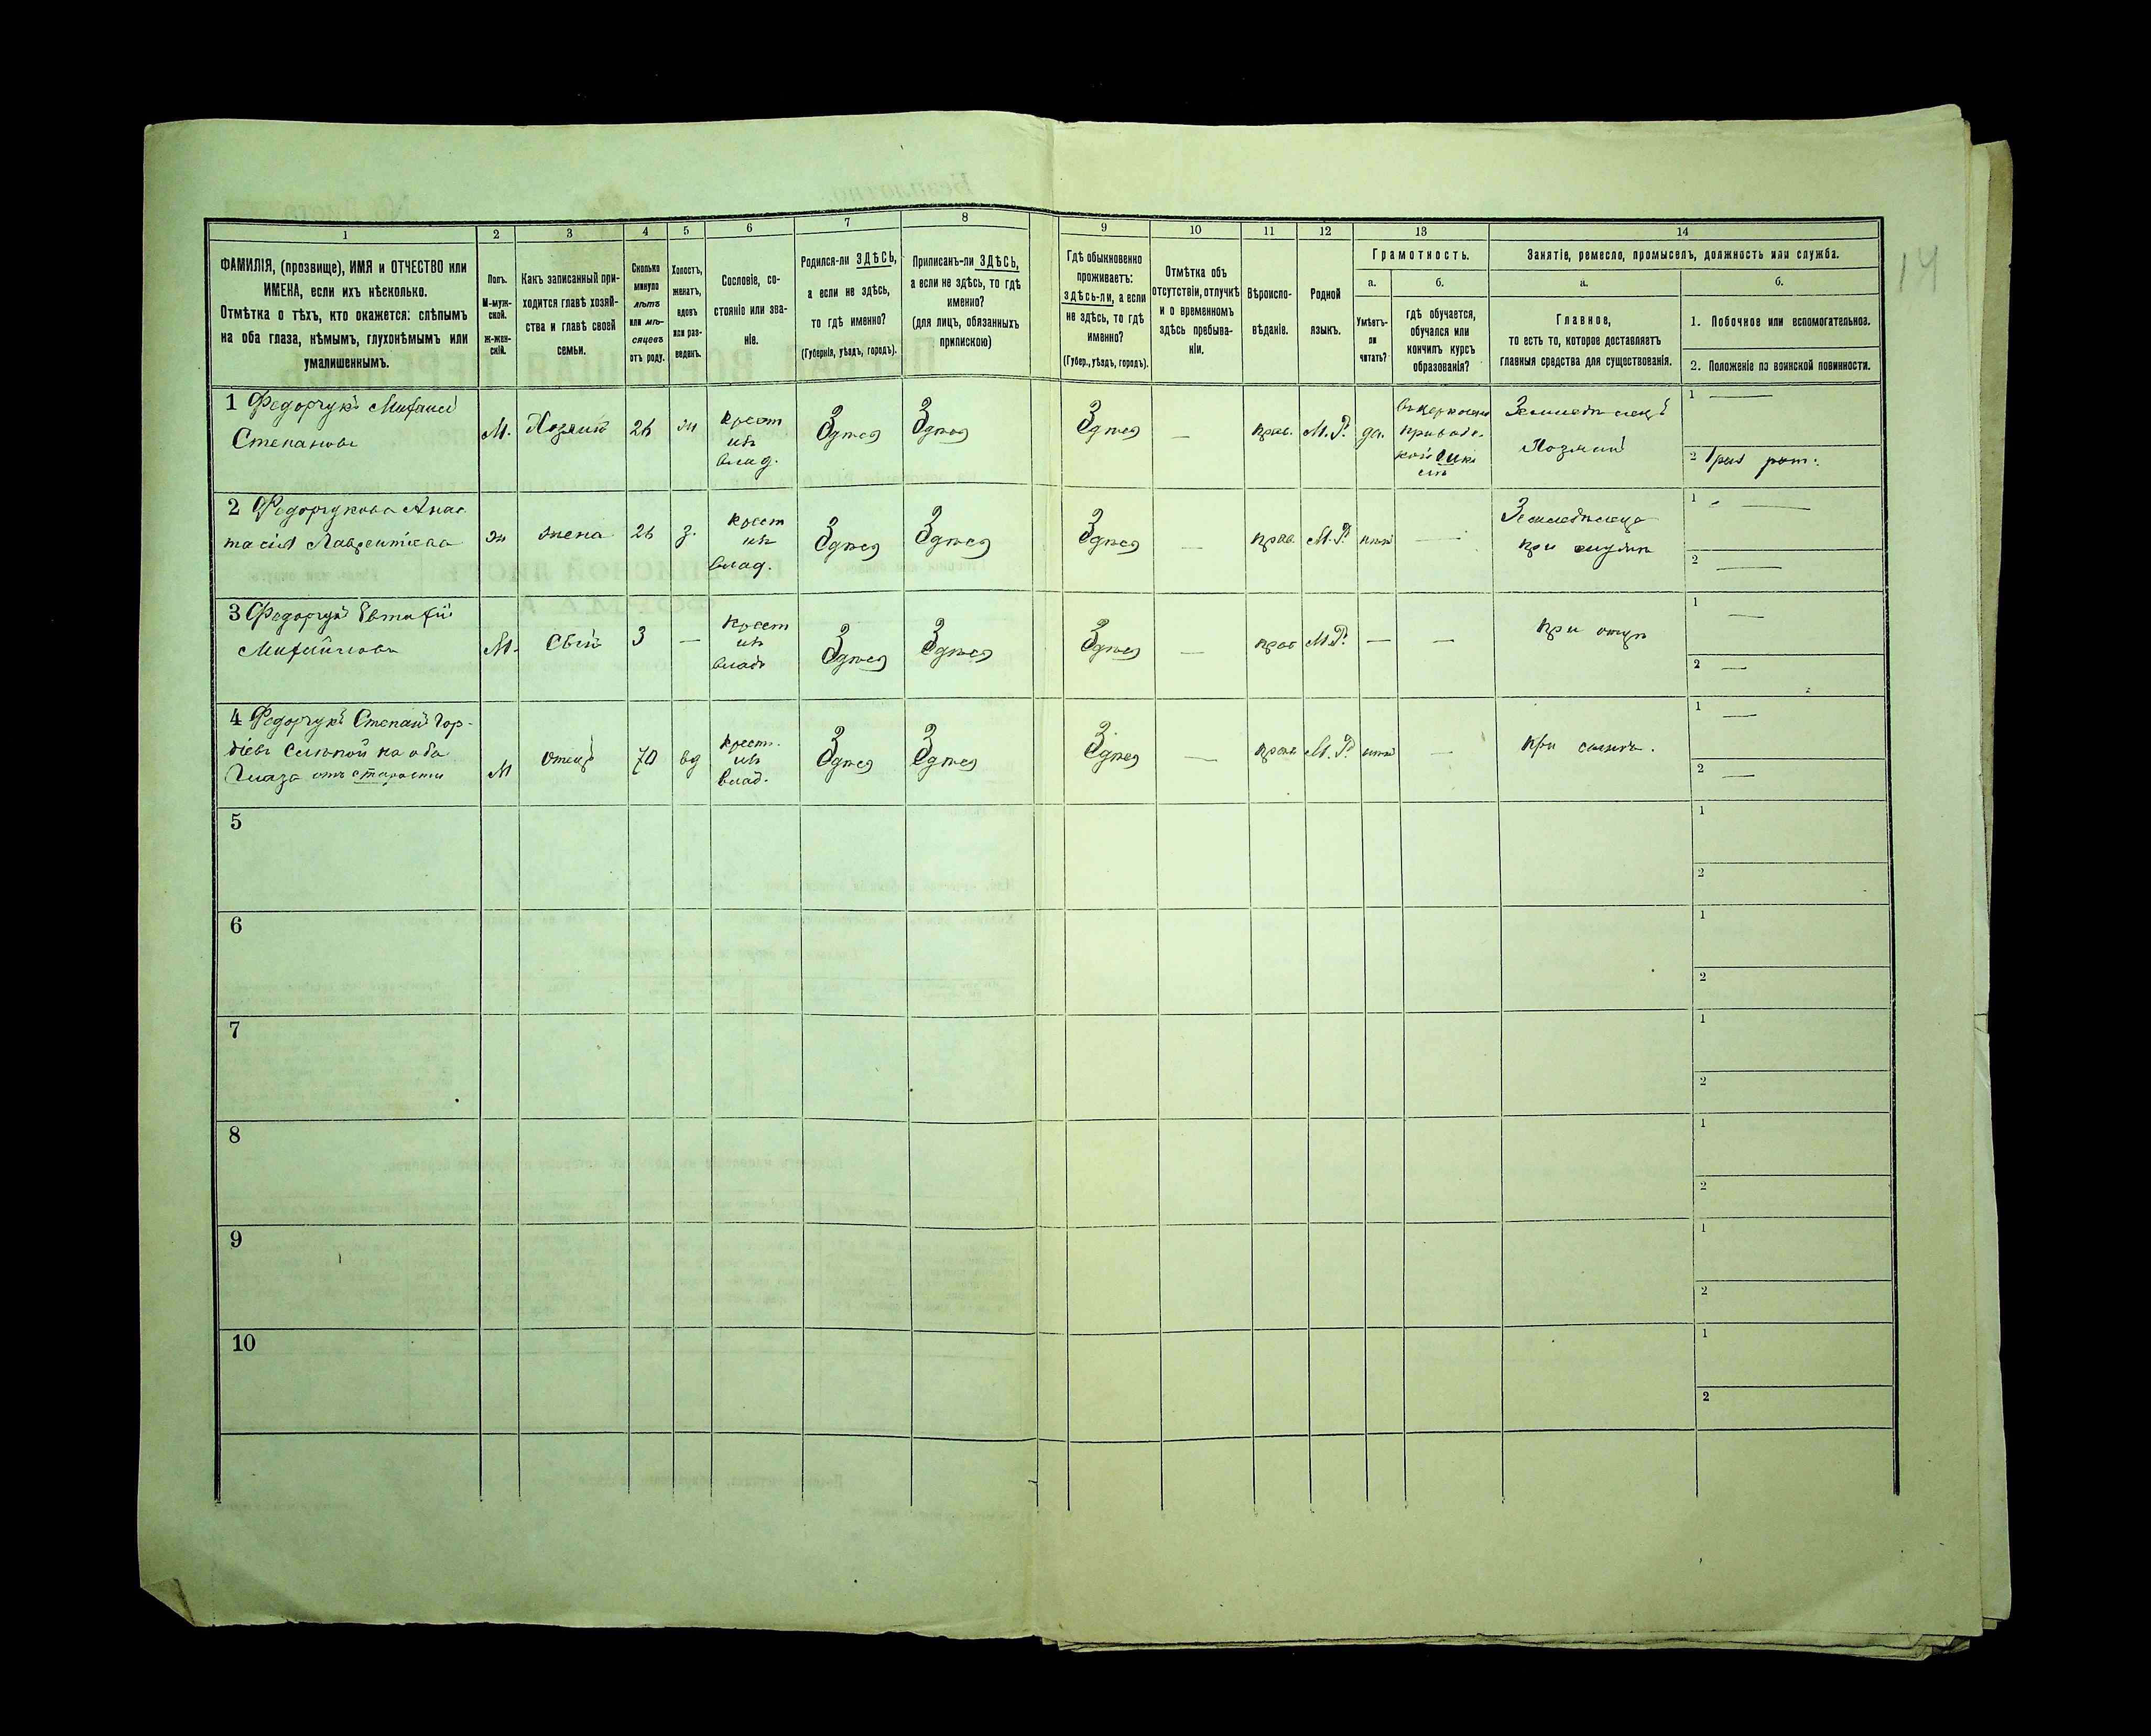 14
1
2
3
4
5
6
7
8
9
10
11
12
13
14
ФАМИЛІЯ, (прозвище), ИМЯ и ОТЧЕСТВО или
ИМЕНА, если ихъ нѣсколько.
Отмѣтка о тѣхъ, кто окажется: слѣпымъ
на оба глаза, нѣмымъ, глухонѣмымъ или
умалишеннымъ.
Полъ.
М-муж-
ской.
ж-жен-
скій.
Какъ записанный при-
ходится главѣ хозяй-
ства и главѣ своей
семьи.
Сколько
минуло
лѣтъ
или мѣ-
сяцевъ
отъ роду.
Холостъ,
женатъ,
вдовъ
или раз-
веденъ.
Сословіе, со-
стояніе или зва-
ніе.
Родился-ли ЗДѢСЬ,
а если не здѣсь,
то гдѣ именно?
(Губернія, уѣздъ, городъ).
Приписанъ-ли ЗДѢСЬ,
а если не здѣсь, то гдѣ
именно?
(для лицъ, обязанныхъ
припискою)
Гдѣ обыкновенно
проживаетъ:
здѣсь-ли, а если
не здѣсь, то гдѣ
именно?
(Губер., уѣздъ, городъ).
Отмѣтка объ
отсутствіи, отлучкѣ
и о временномъ
здѣсь пребыва-
ніи.
Вѣроиспо-
вѣданіе.
Родной
языкъ.
Грамотность.
а.
Умѣетъ-
ли
читать?
б.
гдѣ обучается,
обучался или
кончилъ курсъ
образованія?
Занятіе, ремесло, промыселъ, должность или служба.
а.
Главное,
то есть то, которое доставляетъ
главныя средства для существованія.
б.
1. Побочное или вспомогательное.
2. Положеніе по воинской повинности.
1 Федорчукъ Михаилъ
Степановъ
М. Хозяинъ 26 ж
крест
изъ
влад.
Здѣсь Здѣсь Здѣсь — прав. М.Р. да.
Земледѣлецъ
Хозяинъ
1 —
2
2 Федорчукова Анас
тасія Лаврентіева
ж жена 26 з.
крест
изъ
влад.
Здѣсь Здѣсь Здѣсь — прав. М.Р. нѣтъ —
Земледѣлецъ
при мужѣ
1 —
2 —
3 Федорчукъ Евтифій
Михайловъ
М. Сынъ 3 —
крест
изъ
влад.
Здѣсь Здѣсь Здѣсь — прав М.Р. — —
при отцѣ
1 —
2 —
4 Федорчукъ Степанъ Гор-
діевъ слѣпой на оба
глаза отъ старости
М отецъ 70 вд
крест.
изъ
влад.
Здѣсь Здѣсь Здѣсь — прав М.Р. нѣтъ —
при сынѣ.
1 —
2 —
5
1
2
6
1
2
7
1
2
8
1
2
9
1
2
10
1
2